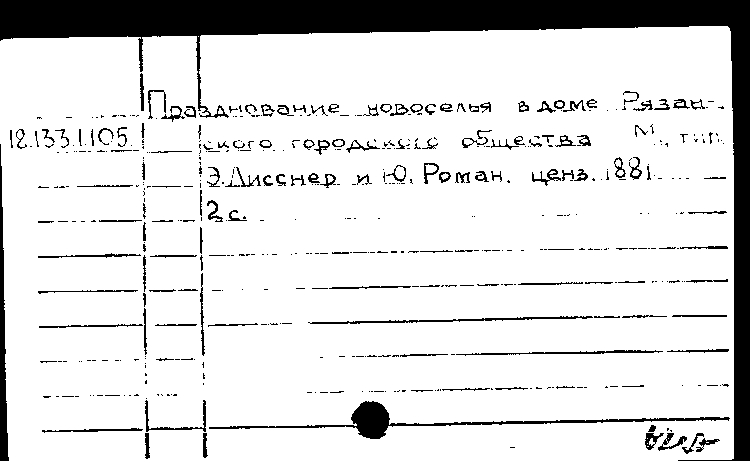 Празднование новоселья в доме Рязан-
18.133.1.105 ского городского общества М., тип.
Э. Лисснер и Ю. Роман. ценз. 1881.
2 с.